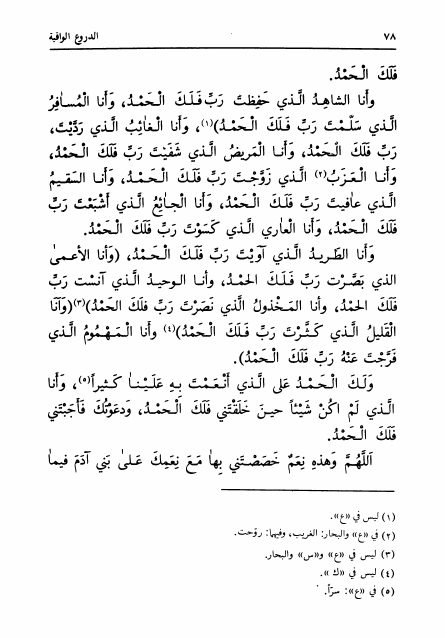 ٧٨ الدروع الواقية
فَلَكَ الْحَمْدُ.
وأَنا الشاهِدُ الَّذي حَفِظتَ رَبِّ فَلَكَ الْحَمْدُ، وَأَنا الْمُسافِرُ
الَّذي سَلَّمْتَ رَبِّ فَلَكَ الْحَمْدُ)(١)، وَأَنا الْغائِبُ الَّذي رَدَّيْتَ،
رَبِّ فَلَكَ الْحَمْدُ، وَأَنا الْمَريضُ الَّذي شَفَيْتَ رَبِّ فَلَكَ الْحَمْدُ،
وَأَنا الْعَزَبُ(٢) الَّذي زَوَّجْتَ رَبِّ فَلَكَ الْحَمْدُ، وَأَنا السَّقيمُ
الَّذي عافَيتَ رَبِّ فَلَكَ الْحَمْدُ، وَأَنا الْجائِعُ الَّذي أَشْبَعْتَ رَبِّ
فَلَكَ الْحَمْدُ، وَأَنا الْعاري الَّذي كَسَوْتَ رَبِّ فَلَكَ الْحَمْدُ.
وَأَنا الطَّريدُ الَّذي آوَيْتَ رَبِّ فَلَكَ الْحَمْدُ، (وأَنا الأعمىٰ
الذي بَصَّرْتَ رَبِّ فَلَكَ الحمْدُ، وأنا الوحيدُ الَّذي آنستَ رَبِّ
فَلَكَ الحمْدُ، وأنا المَخْذولُ الَّذي نَصَرْتَ رَبِّ فلَكَ الحَمْدُ)(٣)(وَأَنَا
الْقَليلُ الَّذي كَثَّرْتَ رَبِّ فَلَكَ الْحَمْدُ)(٤) وأَنا الْمَهْمُومُ الَّذي
فَرَّجْتَ عَنْهُ رَبِّ فَلَكَ الْحَمْدُ).
وَلَكَ الْحَمْدُ عَلَى الَّذي أَنْعَمْتَ بِهِ عَلَيْنا كَثيراً(٥)، وَأَنا
الَّذي لَمْ اكُنْ شَيْئاً حينَ خَلَقْتَني فَلَكَ الْحَمْدُ، وَدَعَوْتُكَ فَأَجَبْتَني
فَلَكَ الْحَمْدُ.
اَللَّهُمَّ وَهذِهِ نِعَمٌ خَصَصْتَني بِها مَعَ نِعَمِكَ عَلىٰ بَني آدَمَ فيما
(١) ليس في «ع».
(٢) في «ع» والبحار: الغريب، وفيهما: روّحت.
(٣) ليس في «ع» و«س» والبحار.
(٤) ليس في «ك».
(٥) في «ع»: سرّاً.